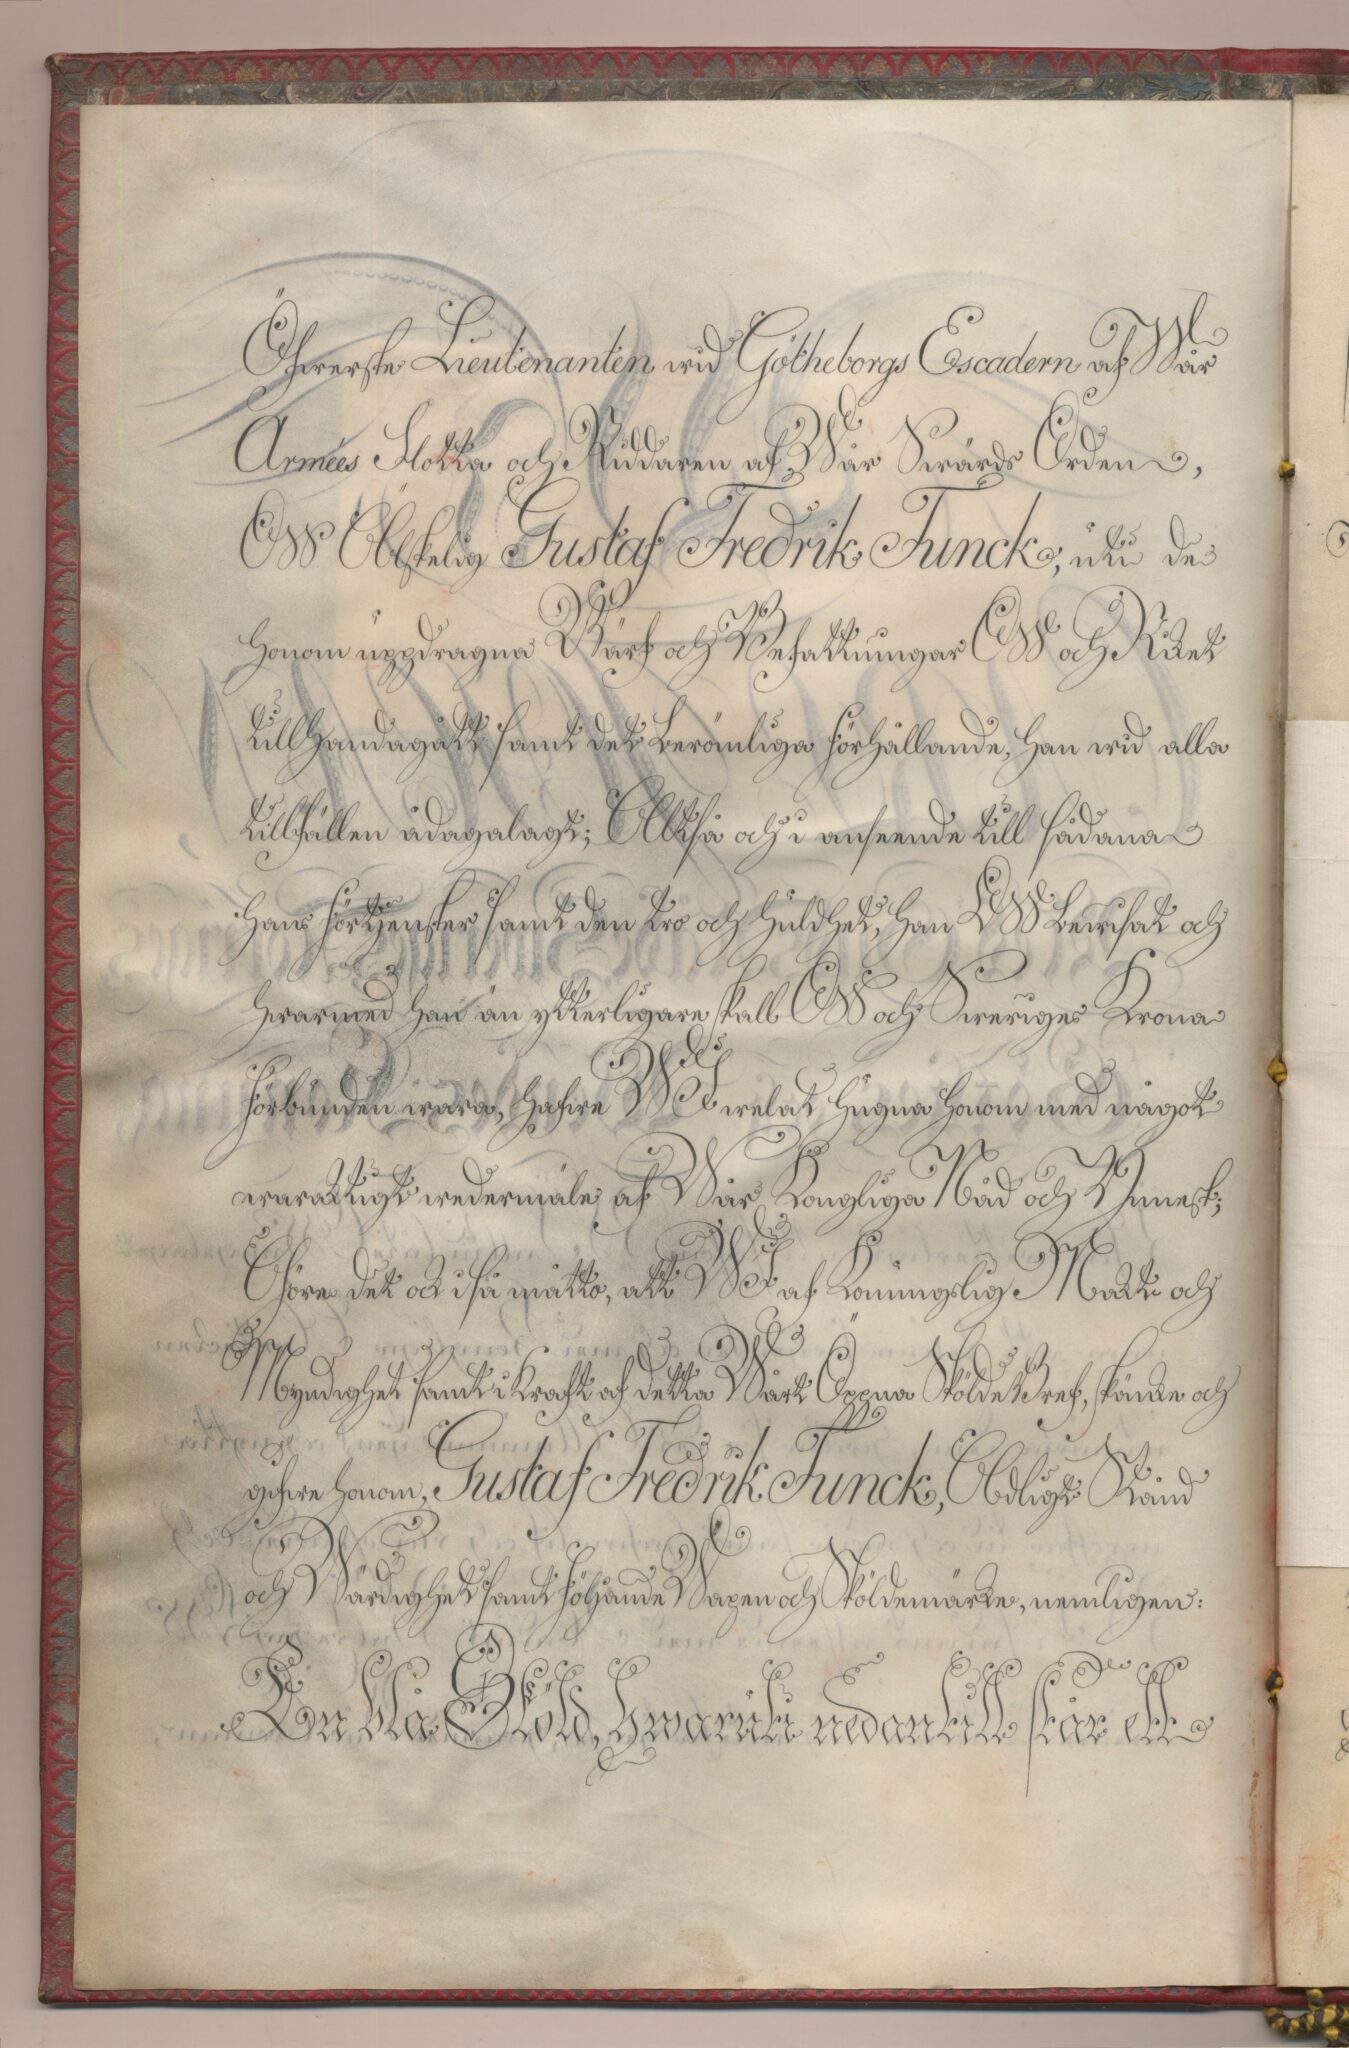 Öfwerste Lieutenanten wid Götheborgs Escadern af Wår
Armées Flotta och Riddaren af Wår Swärds Orden,
Oss Älskelig Gustaf Fredrik Funck, uti de
honom uppdragna Wärf och Befattningar Oss och Riket
tillhandagått samt det berömliga förhållande, han wid alla
tillfällen ådagalagt; Altså och i anseende till sådana
hans förtjenster samt den tro och huldhet, han Oss bewisat och
hwarmed han än ytterligare skall Oss och Sweriges Krona
förbunden wara, hafwe Wi welat hugna honom med något
waracktigt wedermäle af Wår Kongliga Nåd och Ynnest;
Giöre det ock i så måtto, att Wi af Konungslig Mackt och
Myndighet samt i Kraft af detta Wårt Öppna Sköldebref, skänke och
gifwe honom, Gustaf Fredrik Funck, Adligt Stånd
och Wärdighet samt följande Wapen och Sköldemärke, nemligen:
En blå Sköld, hwaruti nedantill står ett